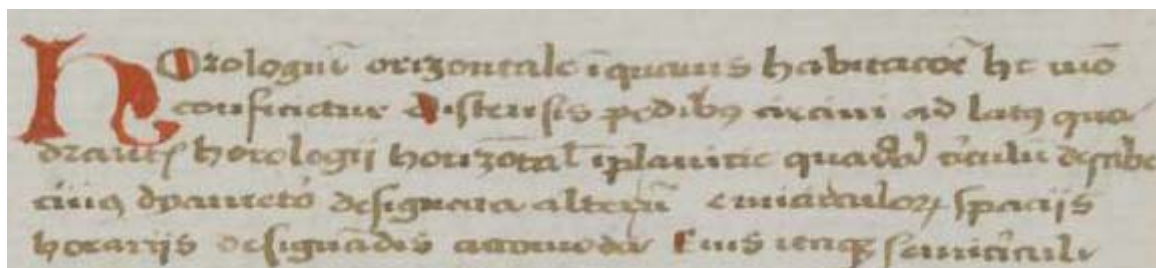 HOrologiū orizontale ī quauis habitacōe hc mō
conficitur Distensis pedibꝰ circini ad latꝰ qua
drantꝭ horologij horizōtal' ī planitie quadā circulū describe
cuiꝰ dyametͦ designata alterū semicirculoꝝ spacijs
horarijs designādis accōmoda Eius itaqꝫ semicirculi